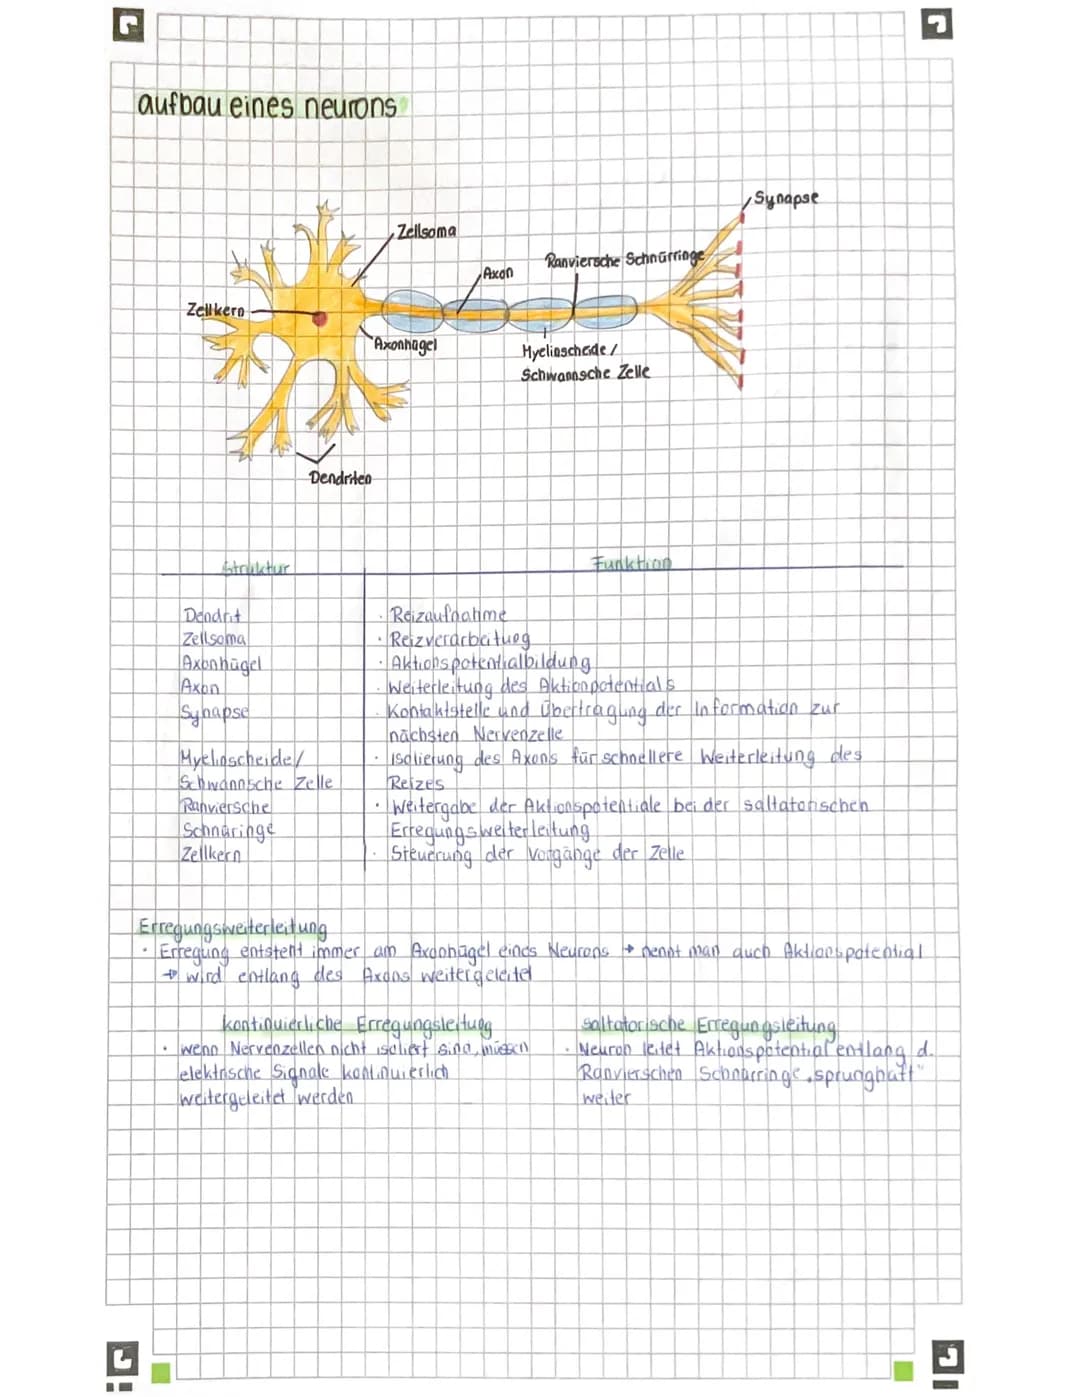 aufbau eines neurons
Synapse
Zellsoma
Ranviersche Schnürringe
Axon
Zellkern
Axonhügel
Myelinscheide /
Schwannsche Zelle
Dendriten
Struktur
Funktion
Dendrit
· Reizaufnahme
Zellsoma
· Reizverarbeitung
Axonhügel
· Aktionspotentialbildung
Axon
· Weiterleitung des Aktionpotentials
Synapse
· Kontaktstelle und Übertragung der Information zur
nächsten Nervenzelle
Myelinscheide/
· Isolierung des Axons für schnellere Weiterleitung des
Schwannsche Zelle
Reizes
Ranviersche
· Weitergabe der Aktionspotentiale bei der saltatorischen
Schnüringe
Erregungsweiterleitung
Zellkern
· Steuerung der Vorgänge der Zelle
Erregungsweiterleitung
· Erregung entsteht immer am Axonhügel eines Neurons → nennt man auch Aktionspotential
→ wird entlang des Axons weitergeleitet
kontinuierliche Erregungsleitung
· wenn Nervenzellen nicht isoliert sind, müssen
elektrische Signale kontinuierlich
weitergeleitet werden
saltatorische Erregungsleitung
· Neuron leitet Aktionspotential entlang d.
Ranvierschen Schnürringe „sprunghaft"
weiter